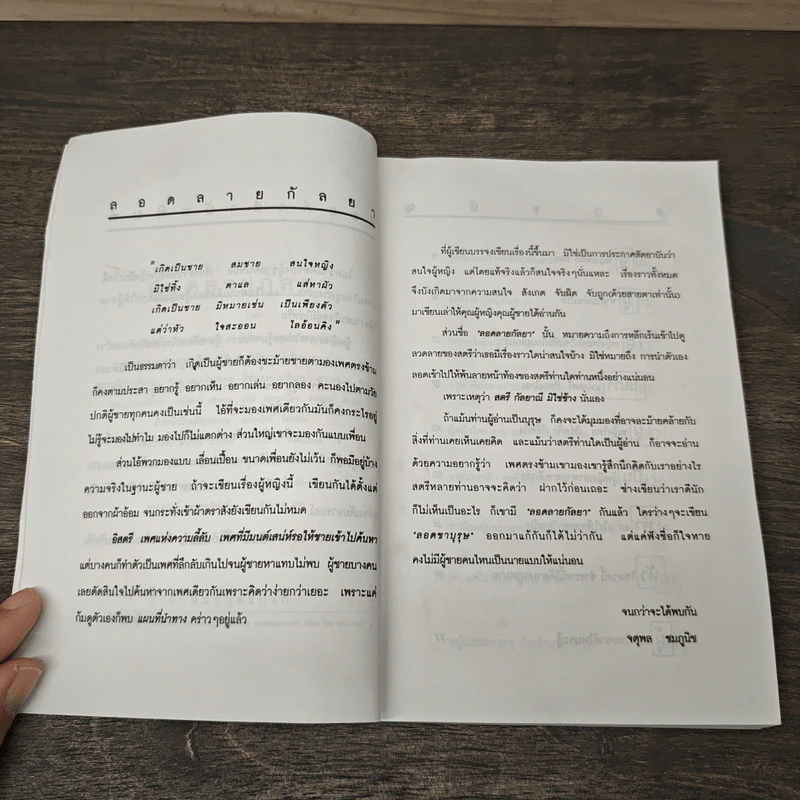 ลอดลายกัลยา
"เกิดเป็นชาย สมชาย สนใจหญิง
มิใช่ทิ้ง ดาแล แส่หาผัว
เกิดเป็นชาย มิหมายเช่น เป็นเพียงตัว
แต่ว่าหัว ใจสะออน ไลอ้อนคิง"
เป็นธรรมดาว่า เกิดเป็นผู้ชายก็ต้องชะม้ายชายตามองเพศตรงข้าม
ก็คงตามประสา อยากรู้ อยากเห็น อยากเล่น อยากลอง คะนองไปตามวัย
ปกติผู้ชายทุกคนคงเป็นเช่นนี้ ไอ้ที่จะมองเพศเดียวกันมันก็คงกระไรอยู่
ไม่รู้จะมองไปทำไม มองไปก็ไม่แตกต่าง ส่วนใหญ่เขาจะมองกันแบบเพื่อน
ส่วนไอ้พวกมองแบบ เลื่อนเปื้อน ขนาดเพื่อนยังไม่เว้น ก็พอมีอยู่บ้าง
ความจริงในฐานะผู้ชาย ถ้าจะเขียนเรื่องผู้หญิงนี้ เขียนกันได้ตั้งแต่
ออกจากผ้าอ้อม จนกระทั่งเข้าผ้าตราสังยังเขียนกันไม่หมด
อิสตรี เพศแห่งความลี้ลับ เพศที่มีมนต์เสน่ห์รอให้ชายเข้าไปค้นหา
แต่บางคนก็ทำตัวเป็นเพศที่ลึกลับเกินไปจนผู้ชายหาแทบไม่พบ ผู้ชายบางคน
เลยตัดสินใจไปค้นหาจากเพศเดียวกันเพราะคิดว่าง่ายกว่าเยอะ เพราะแค่
ก้มดูตัวเองก็พบ แผนที่นำทาง คร่าวๆอยู่แล้ว
ที่ผู้เขียนบรรจงเขียนเรื่องนี้ขึ้นมา มิใช่เป็นการประกาศสัตยาบันว่า
สนใจผู้หญิง แต่โดยแท้จริงแล้วก็สนใจจริงๆนั่นแหละ เรื่องราวทั้งหมด
จึงบังเกิดมาจากความสนใจ สังเกต จับผิด จับถูก(ด้วยสายตาเท่านั้น)
มาเขียนเล่าให้คุณผู้หญิงคุณผู้ชายได้อ่านกัน
ส่วนชื่อ 'ลอดลายกัลยา' นั้น หมายความถึงการหลีกเร้นเข้าไปดู
ลวดลายของสตรีว่าเธอมีเรื่องราวใดน่าสนใจบ้าง มิใช่หมายถึง การนำตัวเอง
ลอดเข้าไปให้พ้นลายหน้าท้องของสตรีท่านใดท่านหนึ่งอย่างแน่นอน
เพราะเหตุว่า สตรี กัลยาณี มิใช่ช้าง นั่นเอง
ถ้าแม้นท่านผู้อ่านเป็นบุรุษ ก็คงจะได้มุมมองที่อาจละม้ายคล้ายกับ
สิ่งที่ท่านเคยเห็นเคยคิด และแม้นว่าสตรีท่านใดเป็นผู้อ่าน ก็อาจจะอ่าน
ด้วยความอยากรู้ว่า เพศตรงข้ามเขามองเขารู้สึกนึกคิดกับเราอย่างไร
สตรีหลายท่านอาจจะคิดว่า ฝากไว้ก่อนเถอะ ช่างเขียนว่าเราดีนัก
ก็ไม่เห็นเป็นอะไร ก็เขามี 'ลอดลายกัลยา' กันแล้ว ใครว่างๆจะเขียน
'ลอดขาบุรุษ' ออกมาแก้กันก็ได้ไม่ว่ากัน แต่แค่ฟังชื่อก็ใจหาย
คงไม่มีผู้ชายคนไหนเป็นนายแบบให้แน่นอน
จนกว่าจะได้พบกัน
จตุพล ชมภูนิช